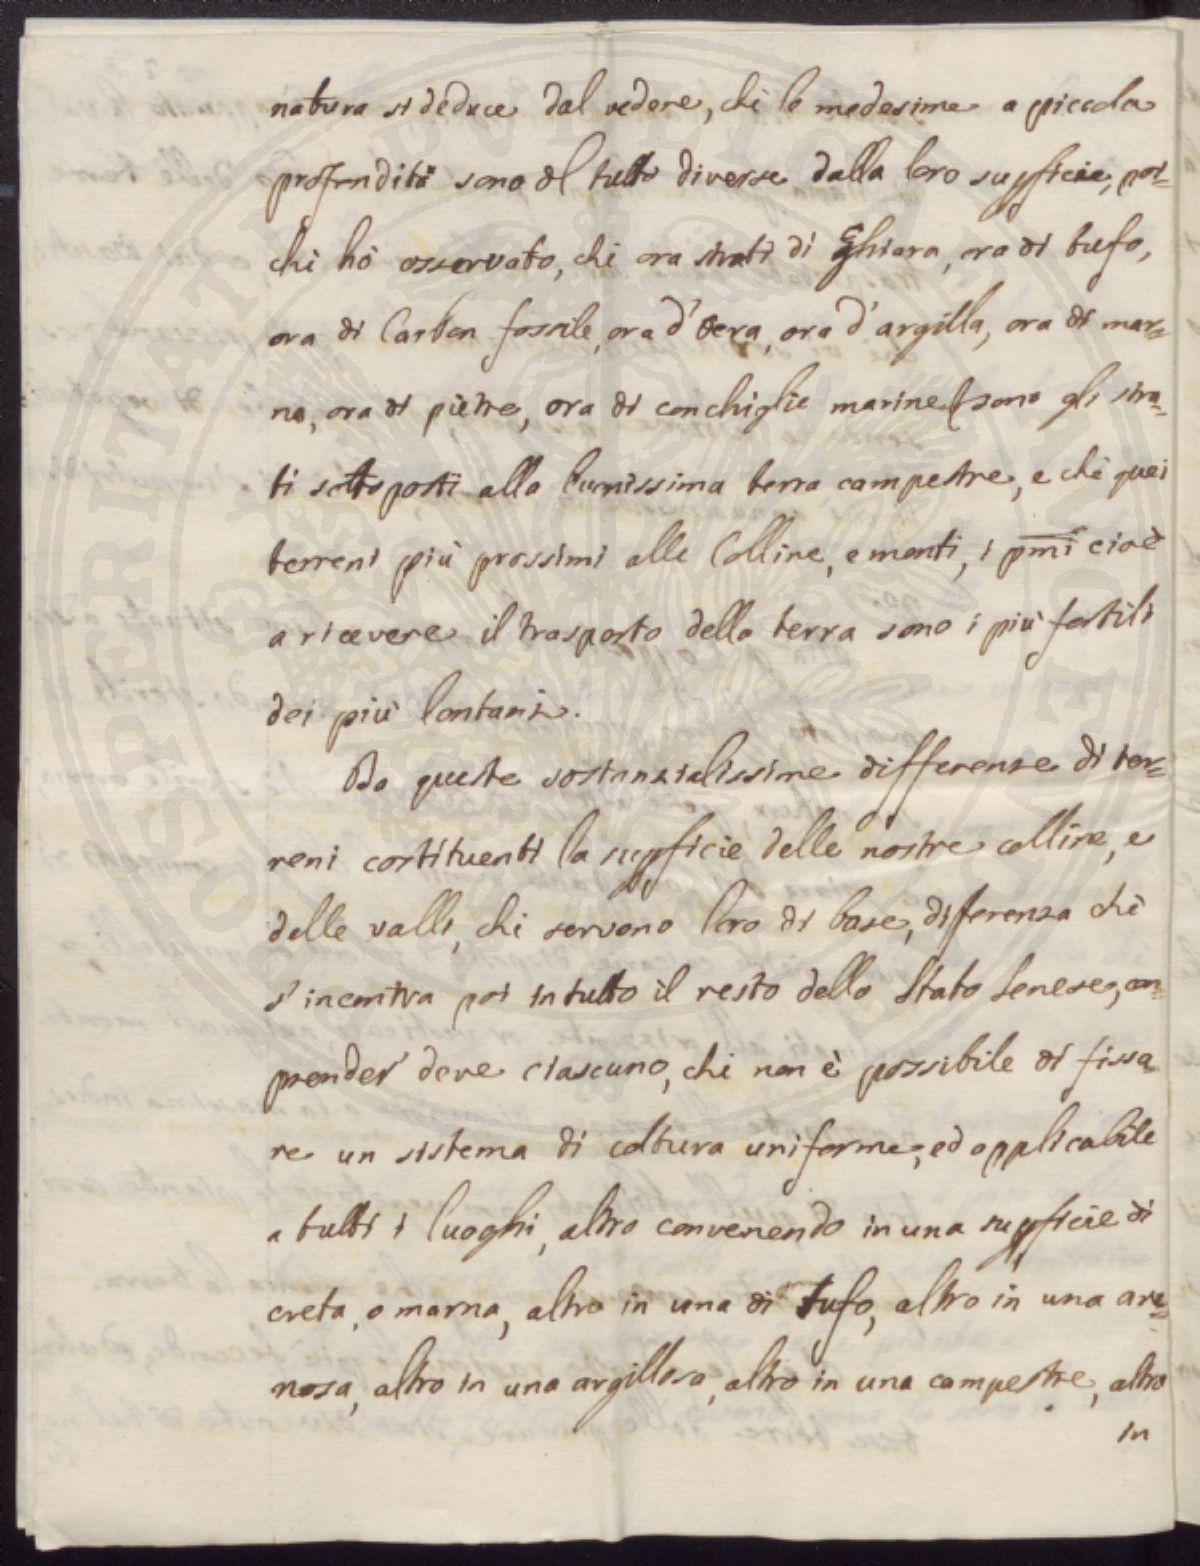 natura si deduce dal vedere, che le medesime a piccola
profondità sono del tutto diverse dalla loro supficie, poi=
chè hò osservato, che ora strati di Ghiara, ora di tufo,
ora di Carbon fossile, ora d'Ocra, ora d'argilla, ora di mar=
na, ora di pietre, ora di conchiglie marine sono gli stra=
ti sottoposti alla buonissima terra campestre, e che quei
terreni più prossimi alle Colline, e monti, i pmi cioè
a ricevere il trasporto della terra sono i più fertili
dei più lontani.
Da queste sostanzialissime differenze di ter=
reni costituenti la supficie delle nostre colline, e
delle valli, che servono loro di base, differenza che
s'incontra poi in tutto il resto dello Stato Senese, com=
prender deve ciascuno, che non è possibile di fissa=
re un sistema di coltura uniforme, ed applicabile
a tutti i luoghi, altro convenendo in una supficie di
creta, o marna, altro in una di tufo, altro in una are=
nosa, altro in una argillosa, altro in una campestre, altro
in